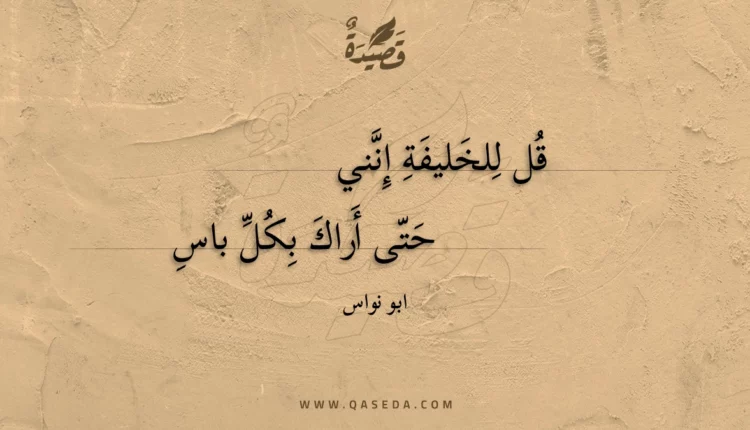 قَصِيْدَةٌ
قُل لِلخَليفَةِ إِنَّني
حَتّى أَراكَ بِكُلِّ باسِ
ابو نواس
WWW.QASEDA.COM